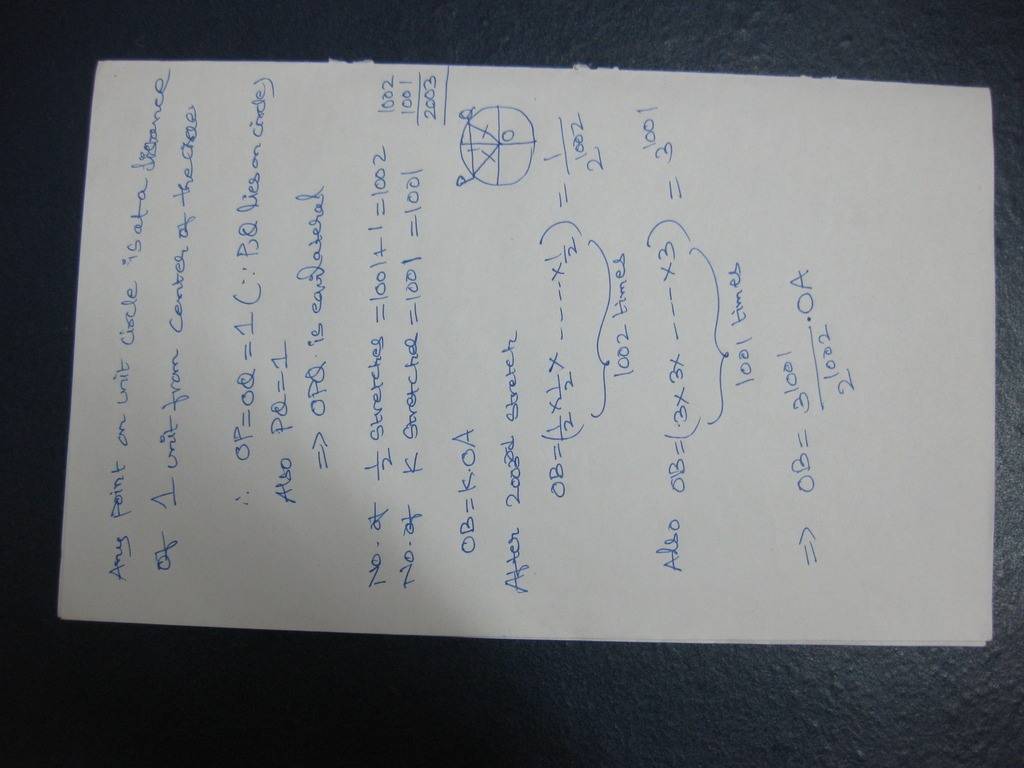 Any point on unit circle is at a distance
of 1 unit from center of the circle
∴ OP=OQ=1 (∵ P,Q lies on circle)
Also PQ=1
=> OPQ is equilateral
No. of 1/2 stretches = 1001+1=1002
No. of K stretched = 1001 = 1001
1002
1001
2003
OB=K.OA
P
Q
O
After 2003rd stretch
OB=(1/2 x 1/2 x ---- x 1/2) = 1/2^1002
1002 times
Also OB=(3x3x ---- x3) = 3^1001
1001 times
=> OB= 3^1001/2^1002 .OA